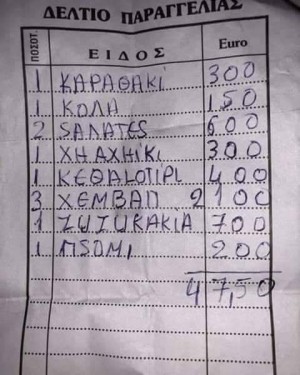 ΔΕΛΤΙΟ ΠΑΡΑΓΓΕΛΙΑΣ
ΠΟΣΟΤ. ΕΙΔΟΣ Euro
1 ΚΑΡΑΘΑΚΙ 300
1 ΚΟΛΑ 150
2 SΑΛΑΤΕS 600
1 ΧΗΑΧΗΙΚΙ 300
1 ΚΕΘΑLΟΤΙΡΙ 400
3 ΧΕΜΒΑΠ 2100
1 ΖUΖUΚΑΚΙΑ 700
1 ΠSΟΜΙ 200
47,50